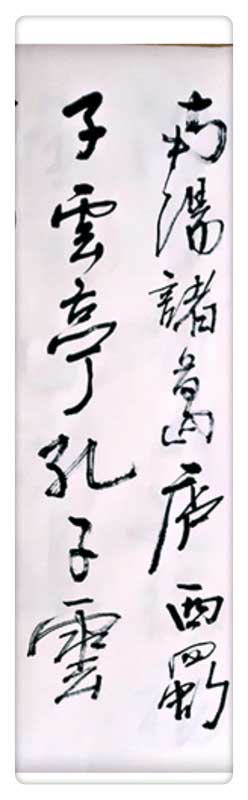 南陽諸葛庐西蜀
子雲亭孔子雲